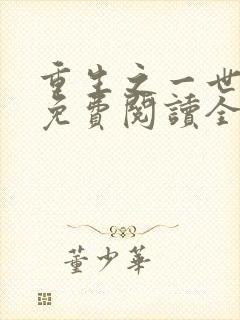 重生之一世
免費閱讀全
董少華